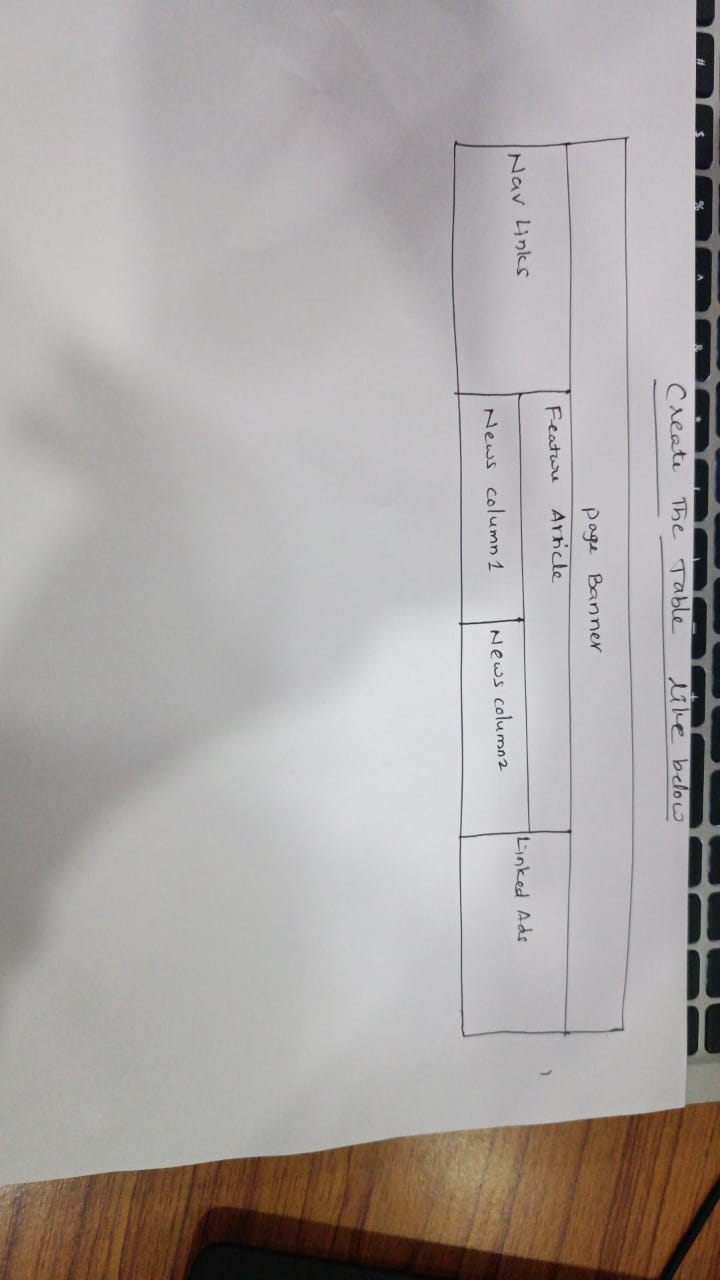 Create The Table like below
Page Banner
Nav Links
Feature Article
Linked Ads
News column1
News column2
#
$
%
^
&
*
+